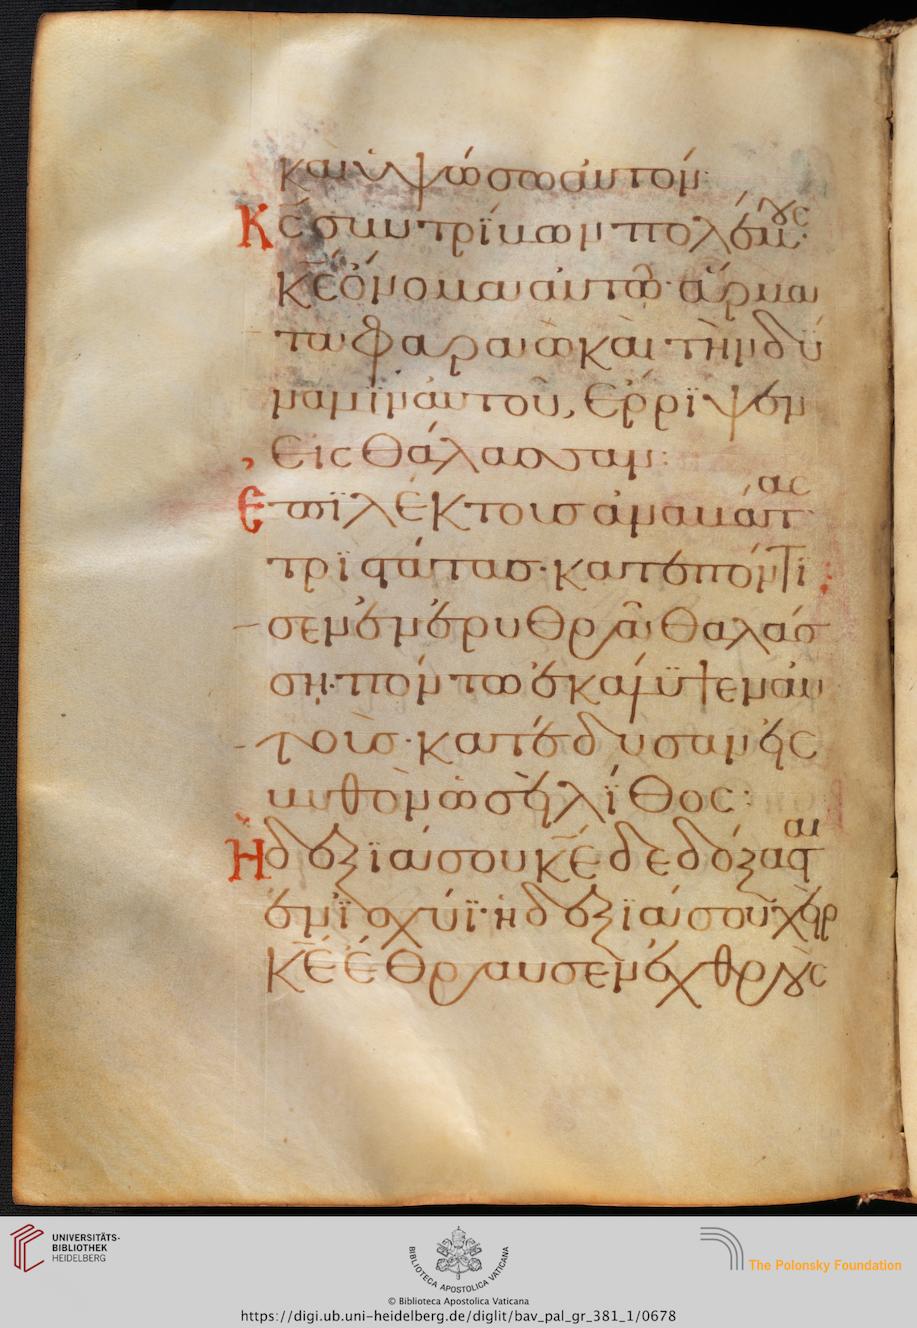 καὶ ὑψώσω ἀυτόν·
Κ̅ς̅ συντρίβων πολέμους·
κ̅ε̅ ὄνομα ἀυτῶ· ἅρμα
τα φαραὼ καὶ τὴν δύ
ναμϊν ἀυτοῦ, ἔρριψεν
εἰς θάλασσαν:
Ἐπϊλέκτους ἀναβάτας
τριστάτας· κατεπόντϊ
σεν ἐν ἐρυθρᾶ θαλάσ
ση· πόντω ἐκάλυψεν ἀυ
τοὺς· κατέδυσαν εἰς
βυθὸν ὡσεὶ λίθος:
Ἡ δεξιά σου κ̅ε̅ δεδόξασται
ἐν ἰσχύϊ· ἡ δεξιά σου χεὶρ
κ̅ε̅ ἔθραυσεν ἐχθροὺς
UNIVERSITÄTS-
BIBLIOTHEK
HEIDELBERG
BIBLIOTECA APOSTOLICA VATICANA
© Biblioteca Apostolica Vaticana
The Polonsky Foundation
https://digi.ub.uni-heidelberg.de/diglit/bav_pal_gr_381_1/0678